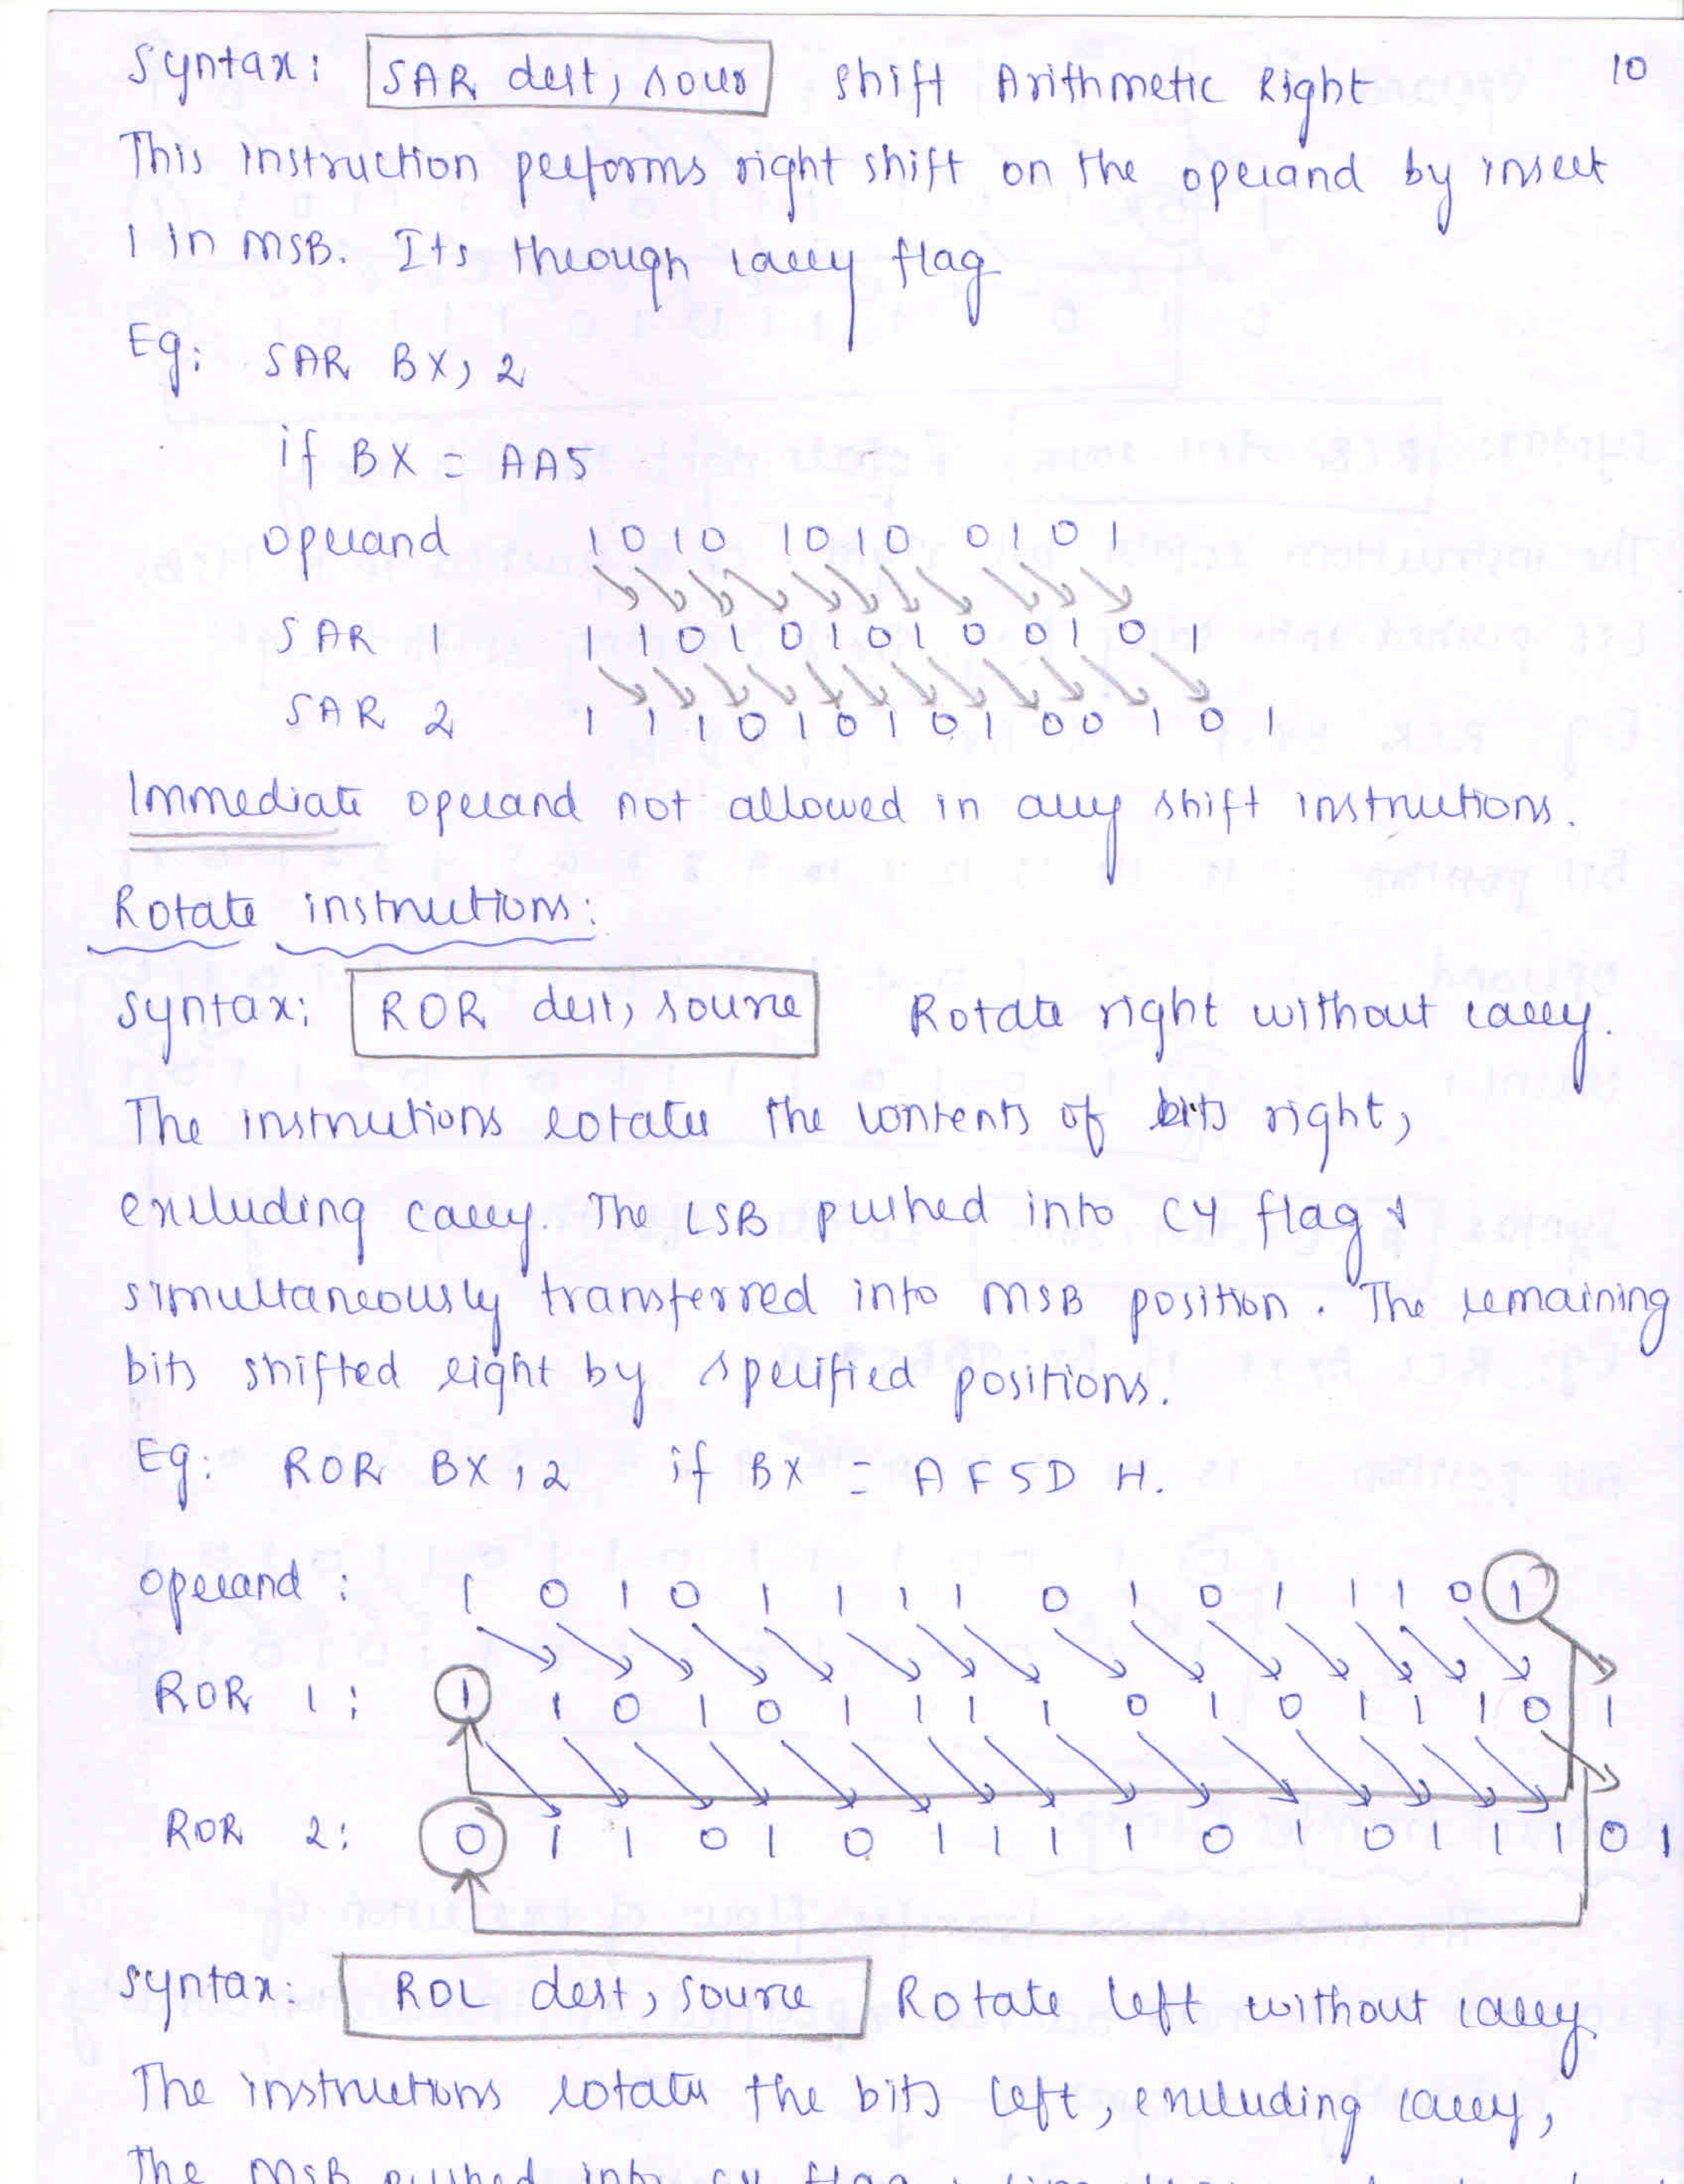 Syntax: SAR dest, sour Shift Arithmetic Right 10
This instruction performs right shift on the operand by insert
1 in MSB. Its through carry flag
Eg: SAR BX, 2
if BX = AA5
operand 1010 1010 0101
SAR 1 1 0 1 0 1 0 1 0 0 1 0 1
SAR 2 1 1 1 0 1 0 1 0 1 0 0 1 0 1
Immediate operand not allowed in any shift instructions.
Rotate instructions:
Syntax: ROR dest, source Rotate right without carry.
The instructions rotates the contents of bits right,
excluding carry. The LSB pushed into CY flag &
simultaneously transferred into MSB position. The remaining
bits shifted right by specified positions.
Eg: ROR BX, 2 if BX = AF5D H.
operand: 1 0 1 0 1 1 1 1 0 1 0 1 1 1 0 1
ROR 1: 1 1 0 1 0 1 1 1 1 0 1 0 1 1 1 0 1
ROR 2: 0 1 1 0 1 0 1 1 1 1 0 1 0 1 1 1 0 1
Syntax: ROL dest, source Rotate left without carry
The instructions rotates the bits left, excluding carry,
The MSB pushed into CY flag